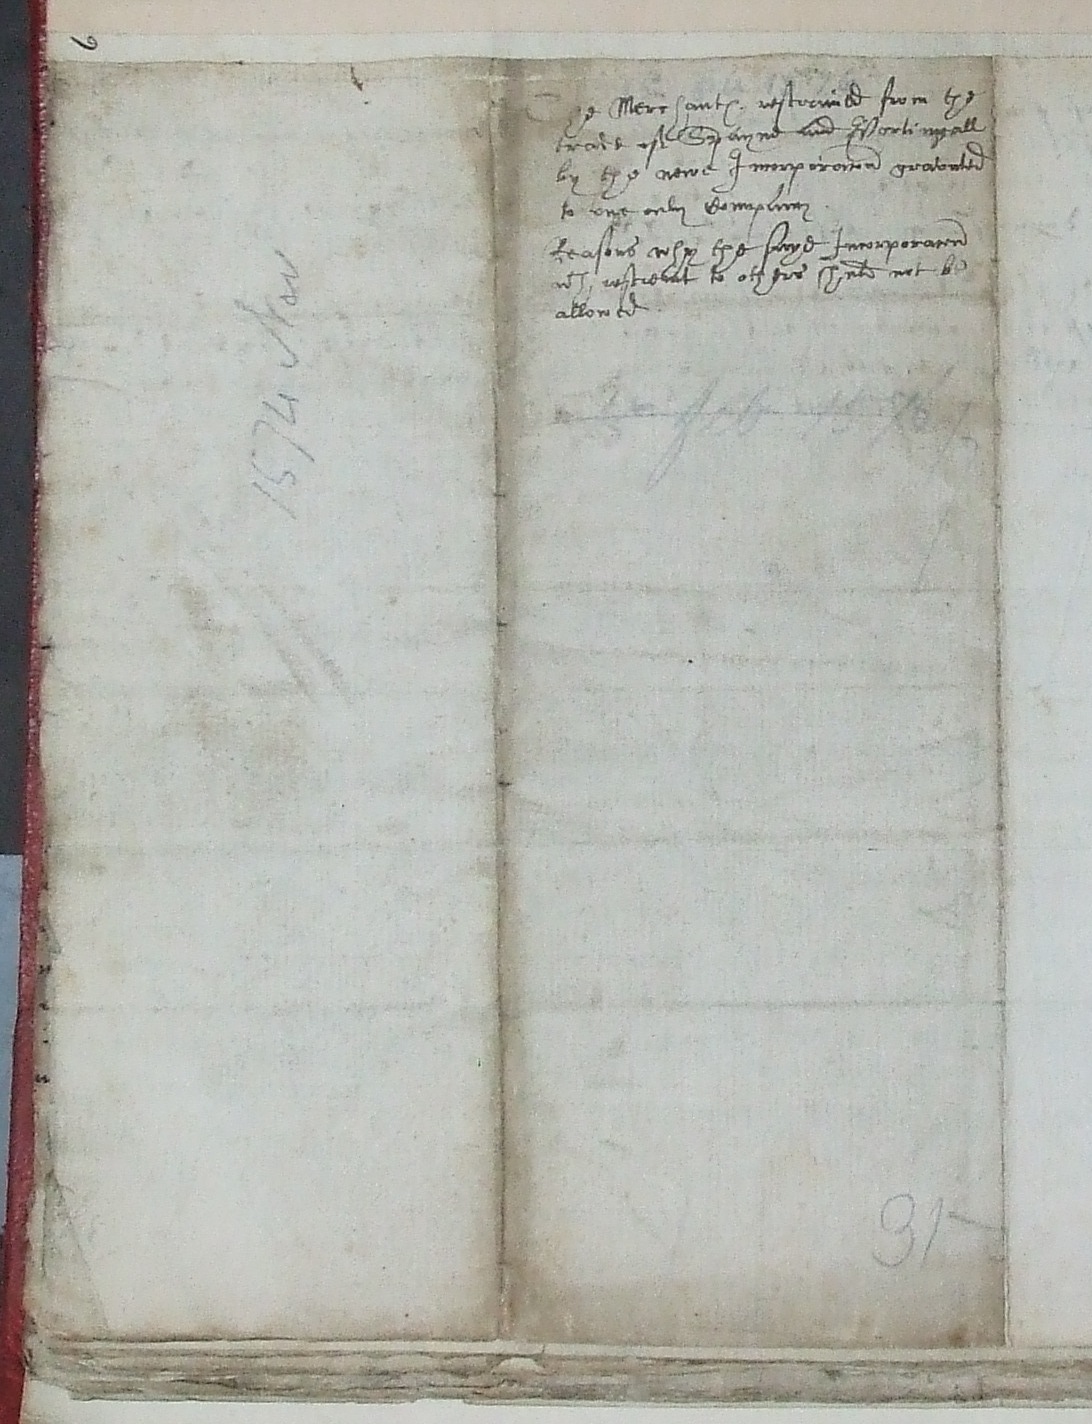 The Merchants restrained from the
trade of Spayne and Portingall
by the newe Incorporacon graunted
to one only Company.
Reasons why the sayd Incorporacon
wth restraint to others shuld not be
allowed.
1574 Nov
31